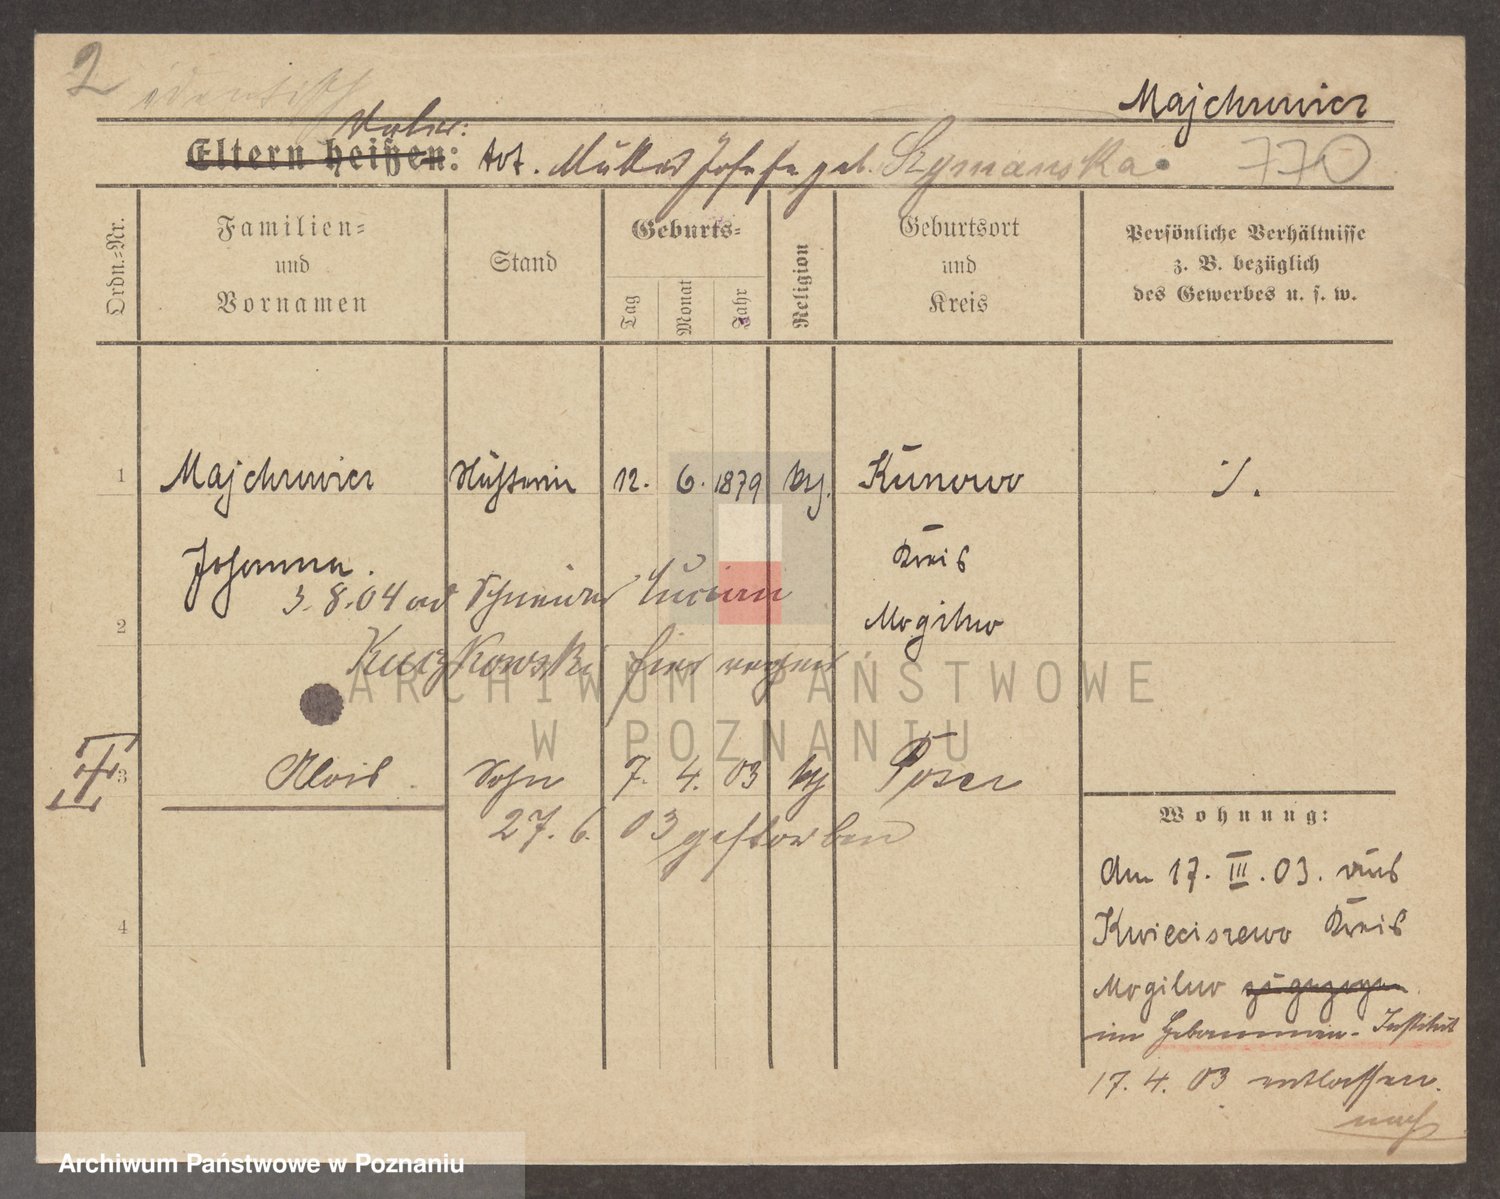 2 identisch
Majchrowicz
Vater:
Eltern heißen: tot. Mutter Josefa geb. Szymanska 770
Ordn.-Nr.
Familien- und Vornamen
Stand
Geburts-
Tag
Monat
Jahr
Religion
Geburtsort und Kreis
Persönliche Verhältnisse
z. B. bezüglich
des Gewerbes u. s. w.
1 Majchrowicz 12. 6. 1879 kth. Kunowo ./.
Johanna. Kreis
3.8.04 Schneider Lucian
2 Mogilno
Kuczkowski hier
ARCHIWUM PAŃSTWOWE
W POZNANIU
3 Alois Sohn 7. 4. 03 kth Posen
27. 6. 03 gestorben
Wohnung:
Am 17. III. 03. aus
4 Kwieciszewo Kreis
Mogilno zugezogen
im Hebammen-Institut
17. 4. 03 entlassen.
nach
Archiwum Państwowe w Poznaniu